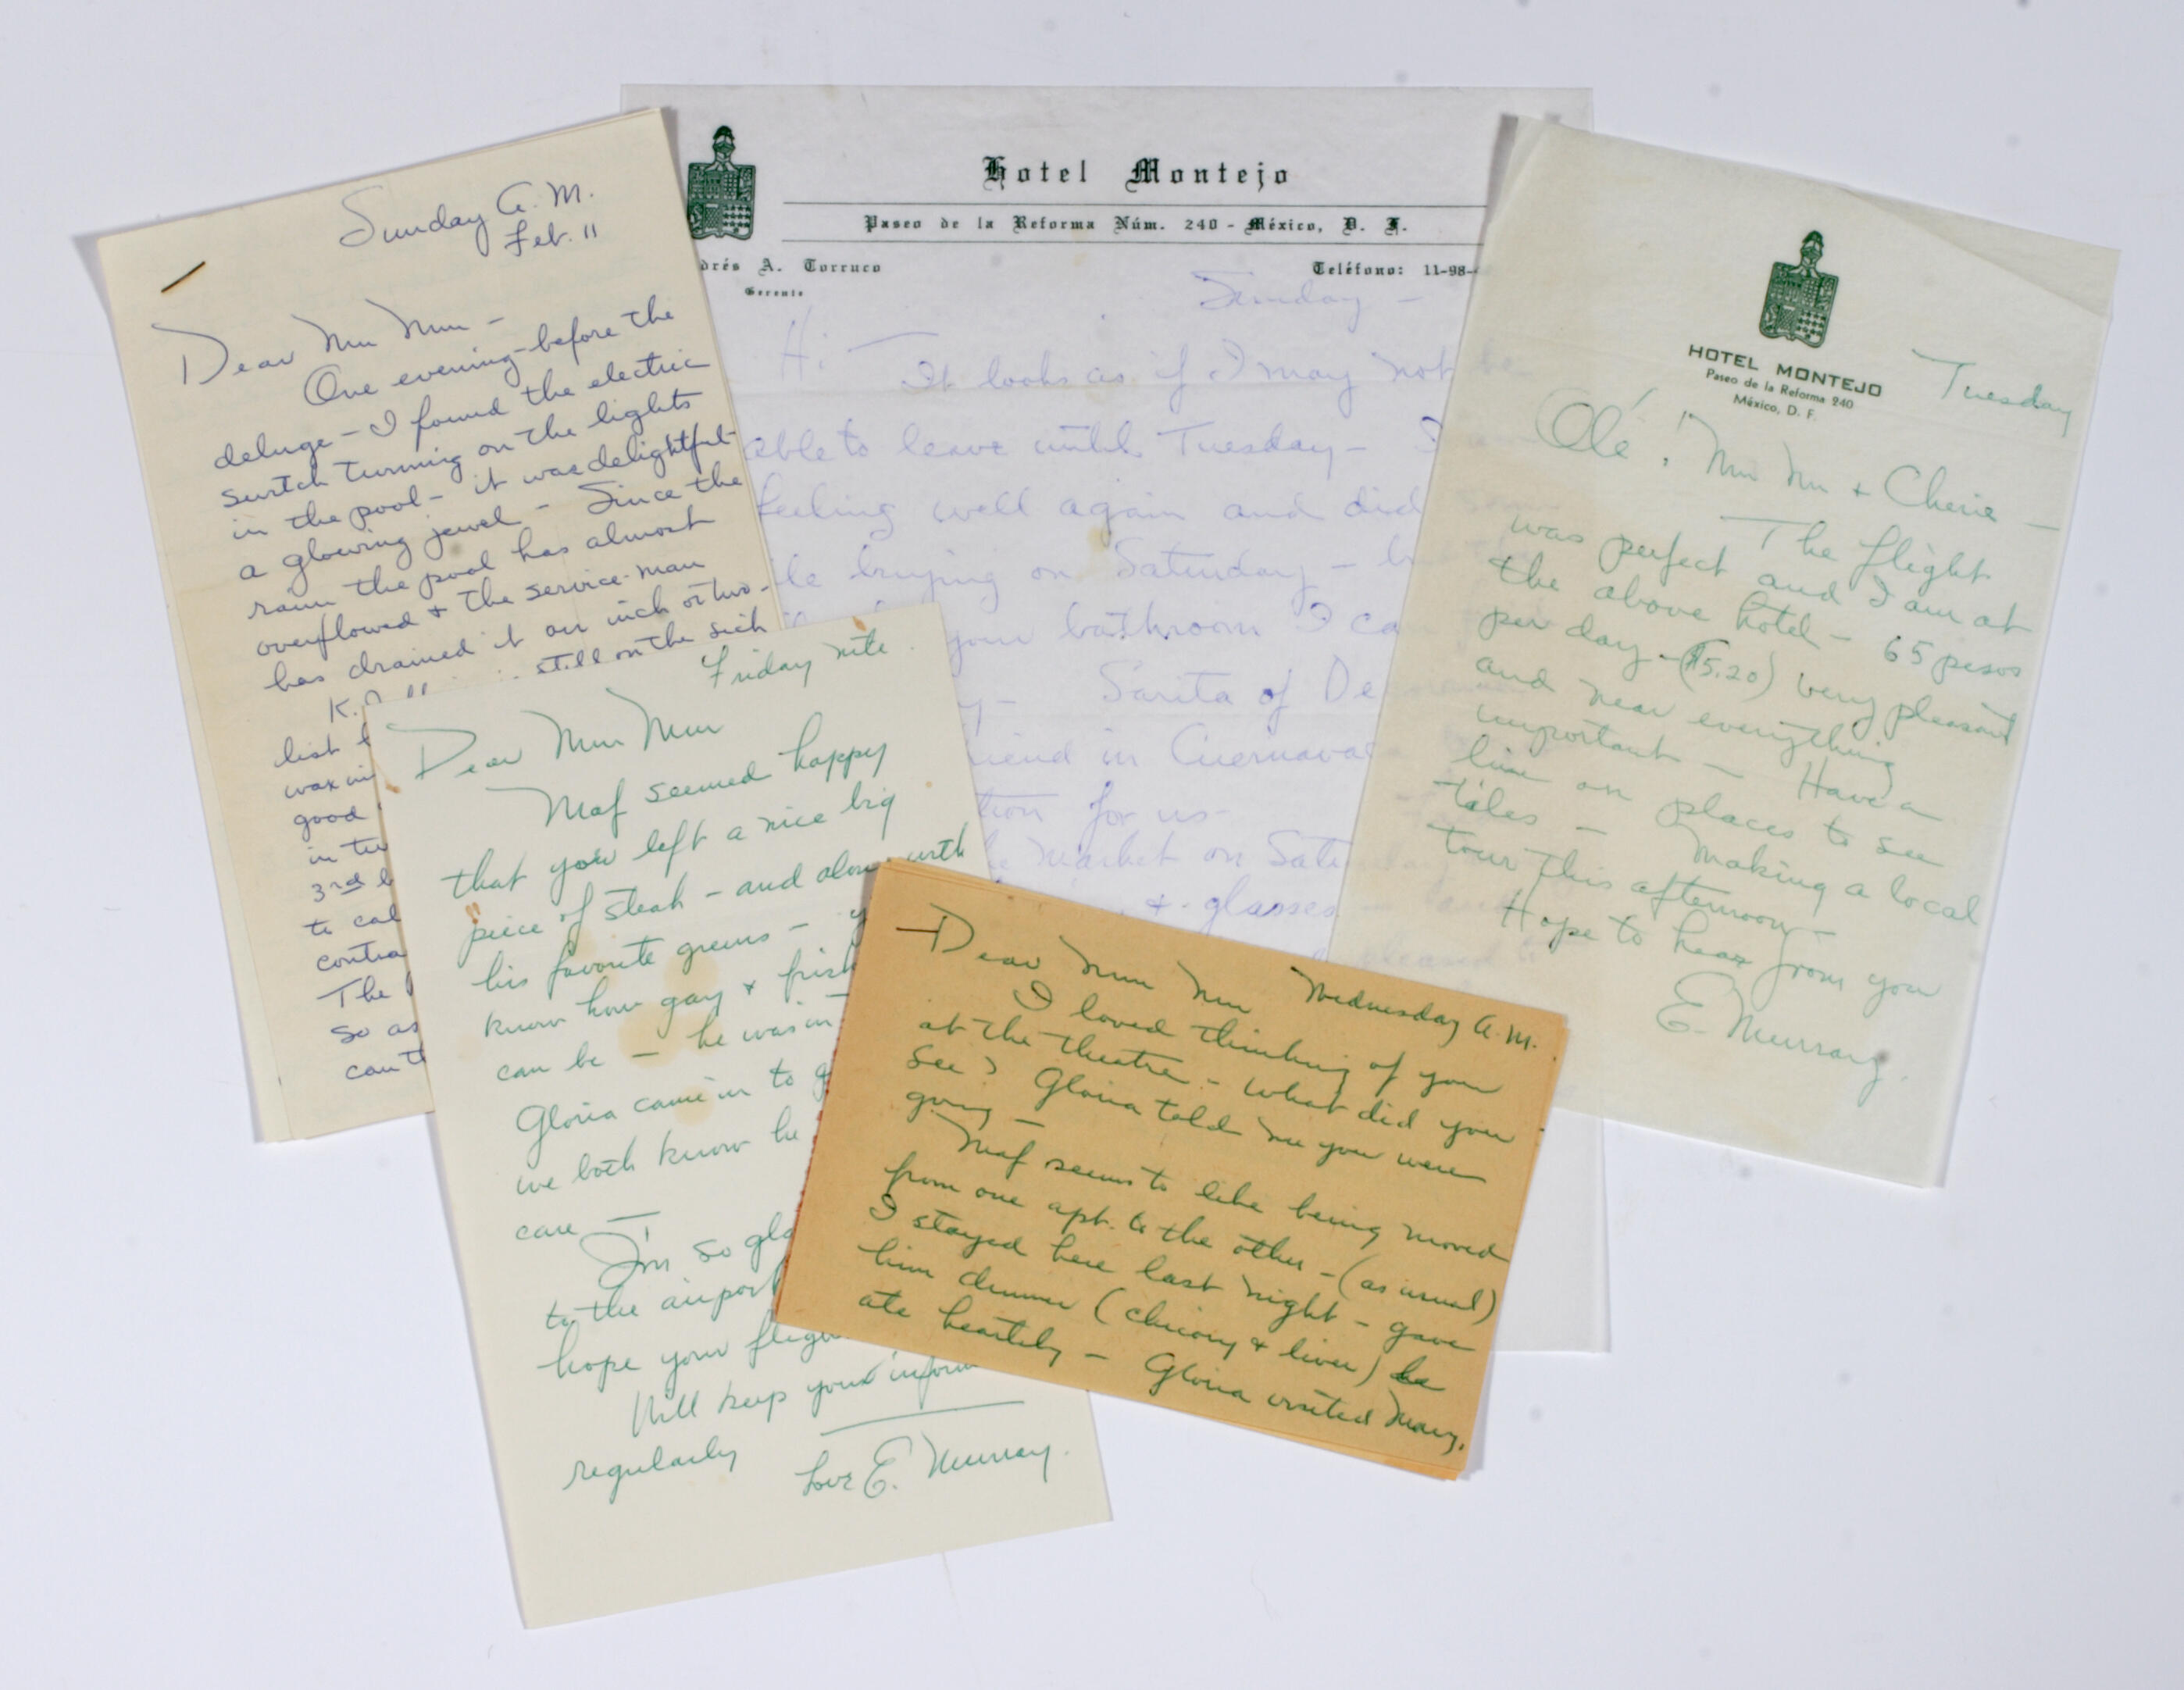 Sunday A.M.
Feb. 11
Dear Mm Mm -
One evening - before the
deluge - I found the electric
switch turning on the lights
in the pool - it was delightful -
a glowing jewel - Since the
rain the pool has almost
overflowed + the service-man
has drained it an inch or two -
still on the sick
list
good
3rd
to cal
contra
The
so as
Hotel Montejo
Paseo de la Reforma Núm. 240 - México, D. F.
drés A. Torruco
Gerente
Teléfono: 11-98-
Sunday -
Hi It looks as if I may not be
able to leave until Tuesday -
feeling well again and did
buying on Saturday -
your bathroom I ca
Sarita of De
iend in Cuernava
tion for us -
Market on Satu
+ glasses -
HOTEL MONTEJO
Paseo de la Reforma 240
México, D. F.
Tuesday
Olé! Mm Mm + Cherie -
The flight
was perfect and I am at
the above hotel - 65 pesos
per day - ($5.20) very pleasant
and near everything
important - Have a
line on places to see
tiles - Making a local
tour this afternoon -
Hope to hear from you
E. Murray.
Friday nite.
Dear Mm Mm
Maf seemed happy
that you left a nice big
piece of steak - and along with
his favorite greens - y
know how gay + frisk
can be - he was in
Gloria came in to g
we both know he
care -
I'm so gla
to the airport
hope your fligh
Will keep you inform
regularly
Love E. Murray.
Dear Mm Mm Wednesday A.M.
I loved thinking of you
at the theatre - what did you
see? Gloria told me you were
going -
Maf seems to like being moved
from one apt. to the other - (as usual)
I stayed here last night - gave
him dinner (chicory + liver) he
ate heartily - Gloria visited Mary,